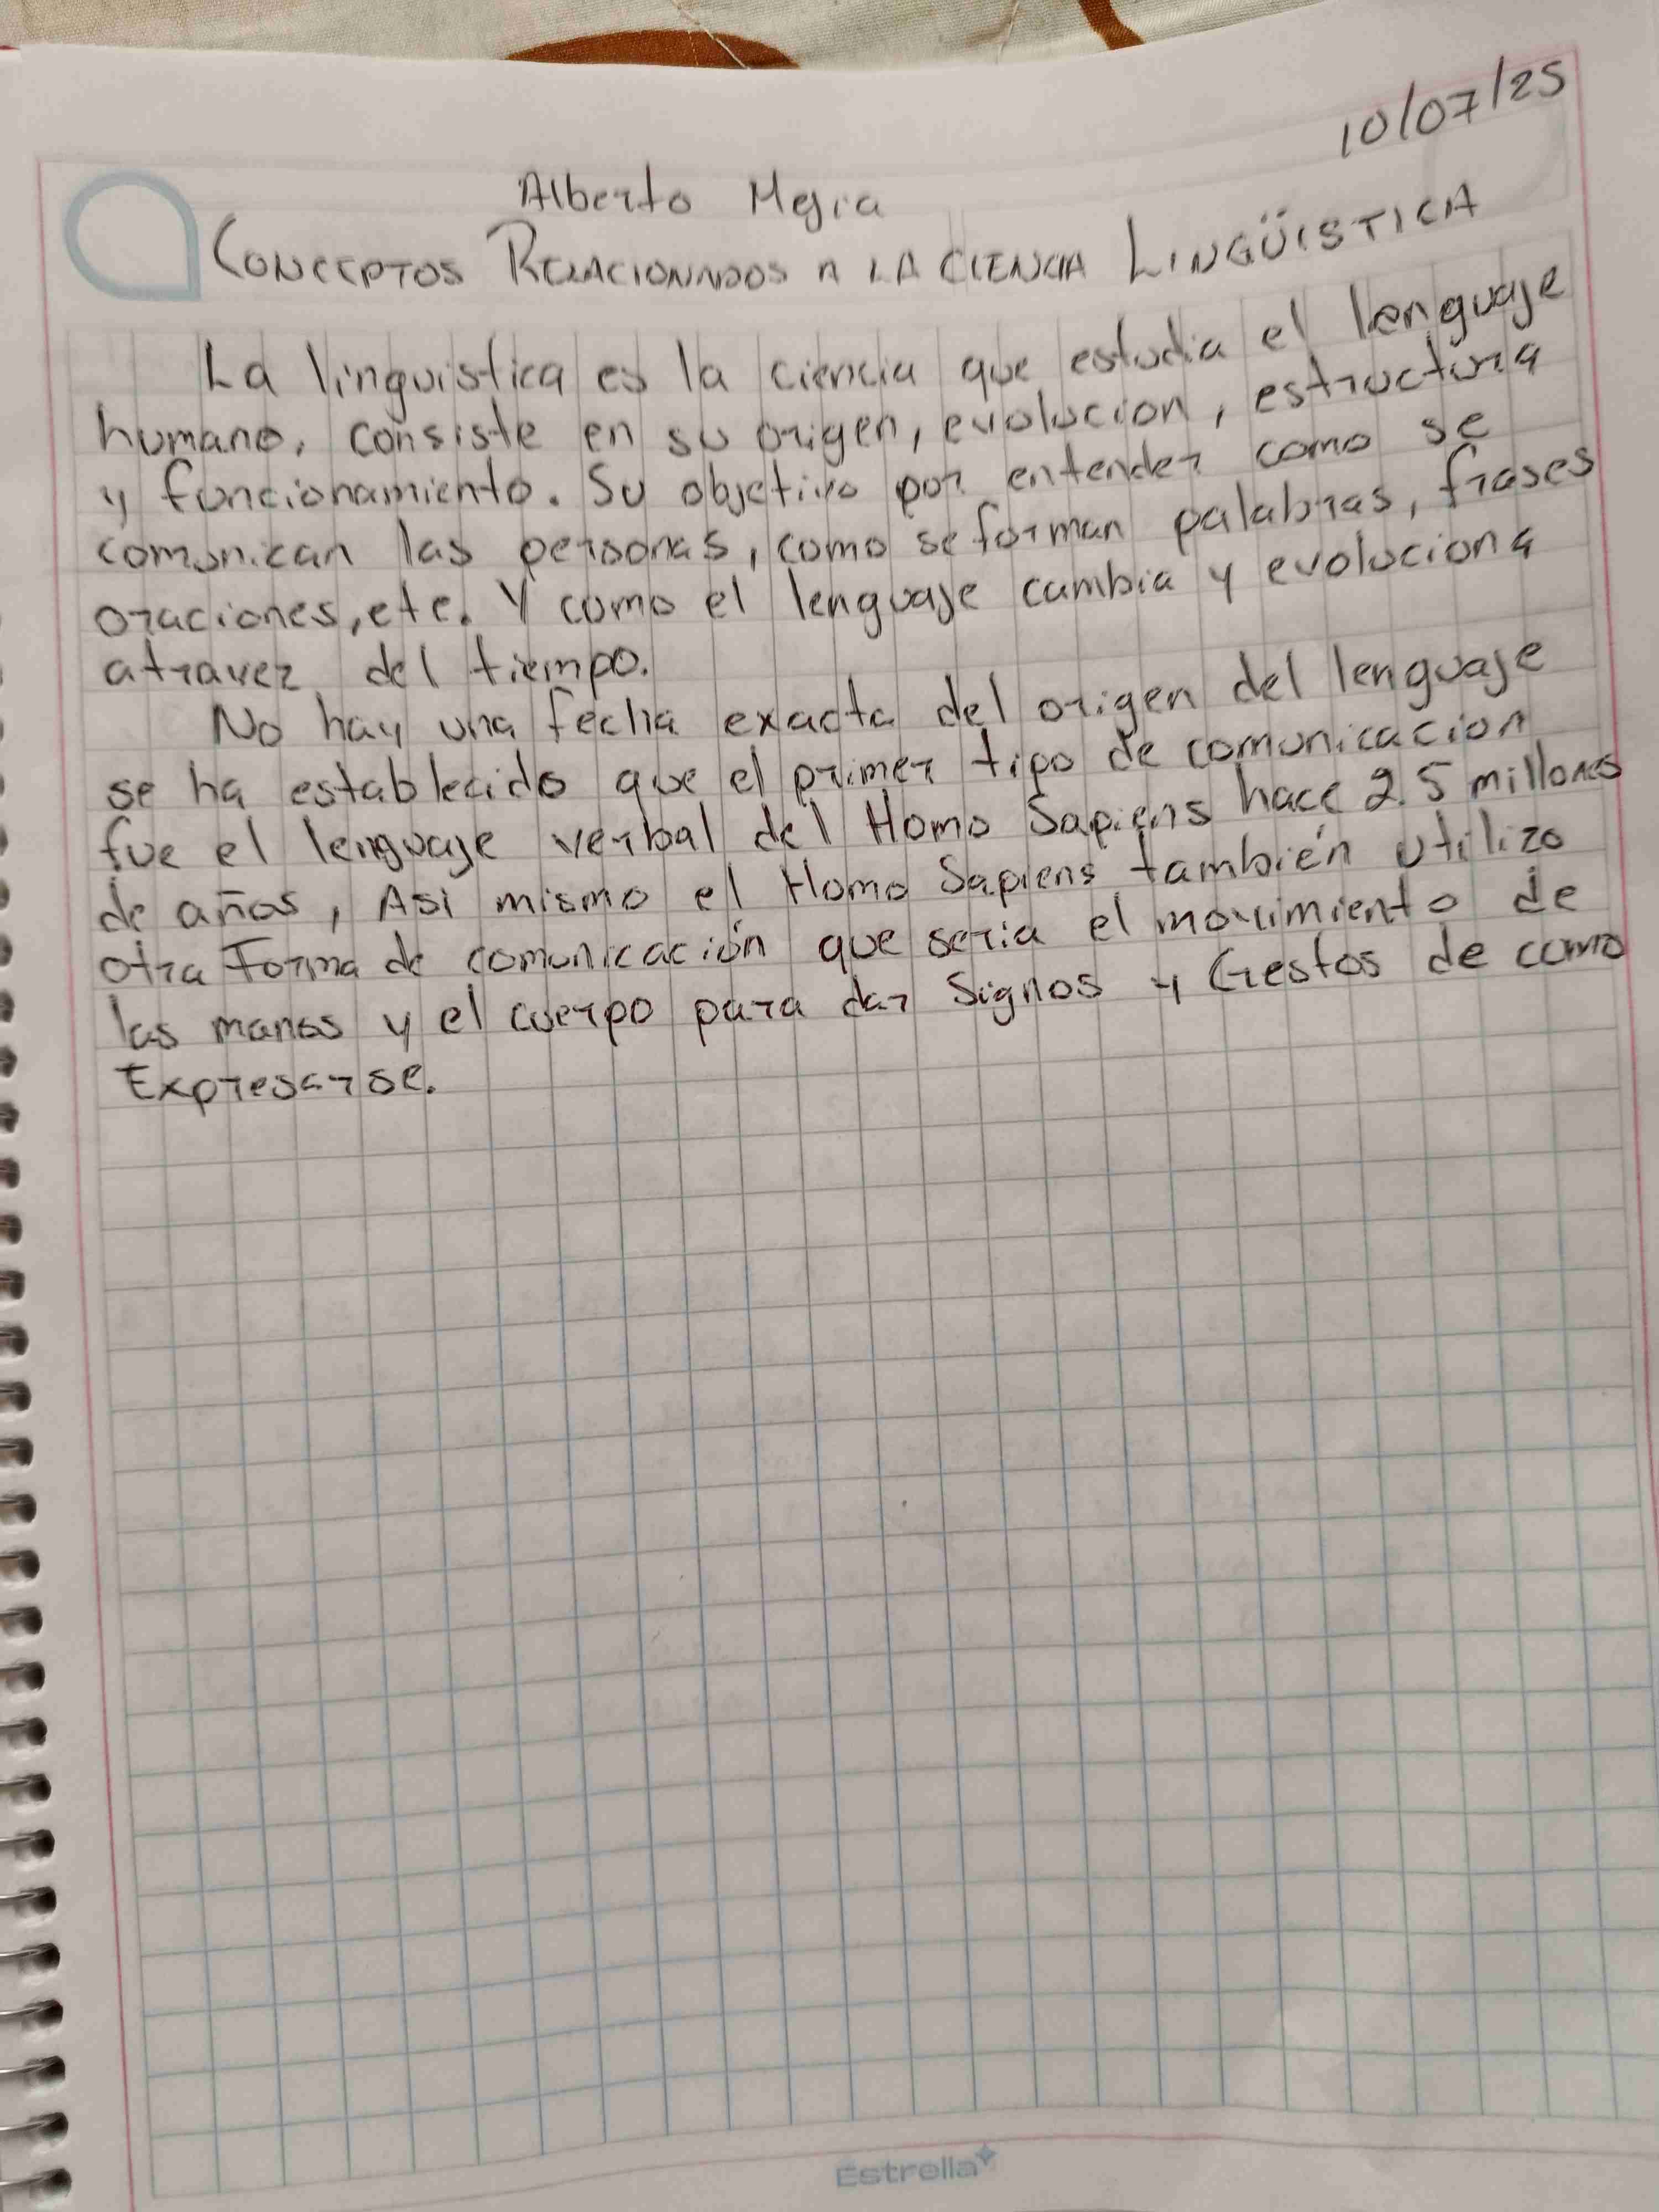 10/07/25
Alberto Mejia
CONCEPTOS RELACIONADOS A LA CIENCIA LINGÜISTICA
La linguistica es la ciencia que estudia el lenguaje
humano, consiste en su origen, evolucion, estructura
y funcionamiento. Su objetivo por entender como se
comunican las personas, como se forman palabras, frases
oraciones, etc. Y como el lenguaje cambia y evoluciona
atravez del tiempo.
No hay una fecha exacta del origen del lenguaje
se ha establecido que el primer tipo de comunicacion
fue el lenguaje verbal del Homo Sapiens hace 2.5 millones
de años, Asi mismo el Homo Sapiens también utilizo
otra Forma de comunicación que seria el movimiento de
las manos y el cuerpo para dar Signos y Gestos de como
Expresarse.
Estrella